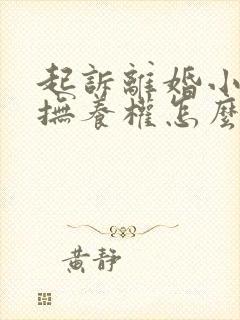 起訴離婚小
撫養權怎麼
黃靜